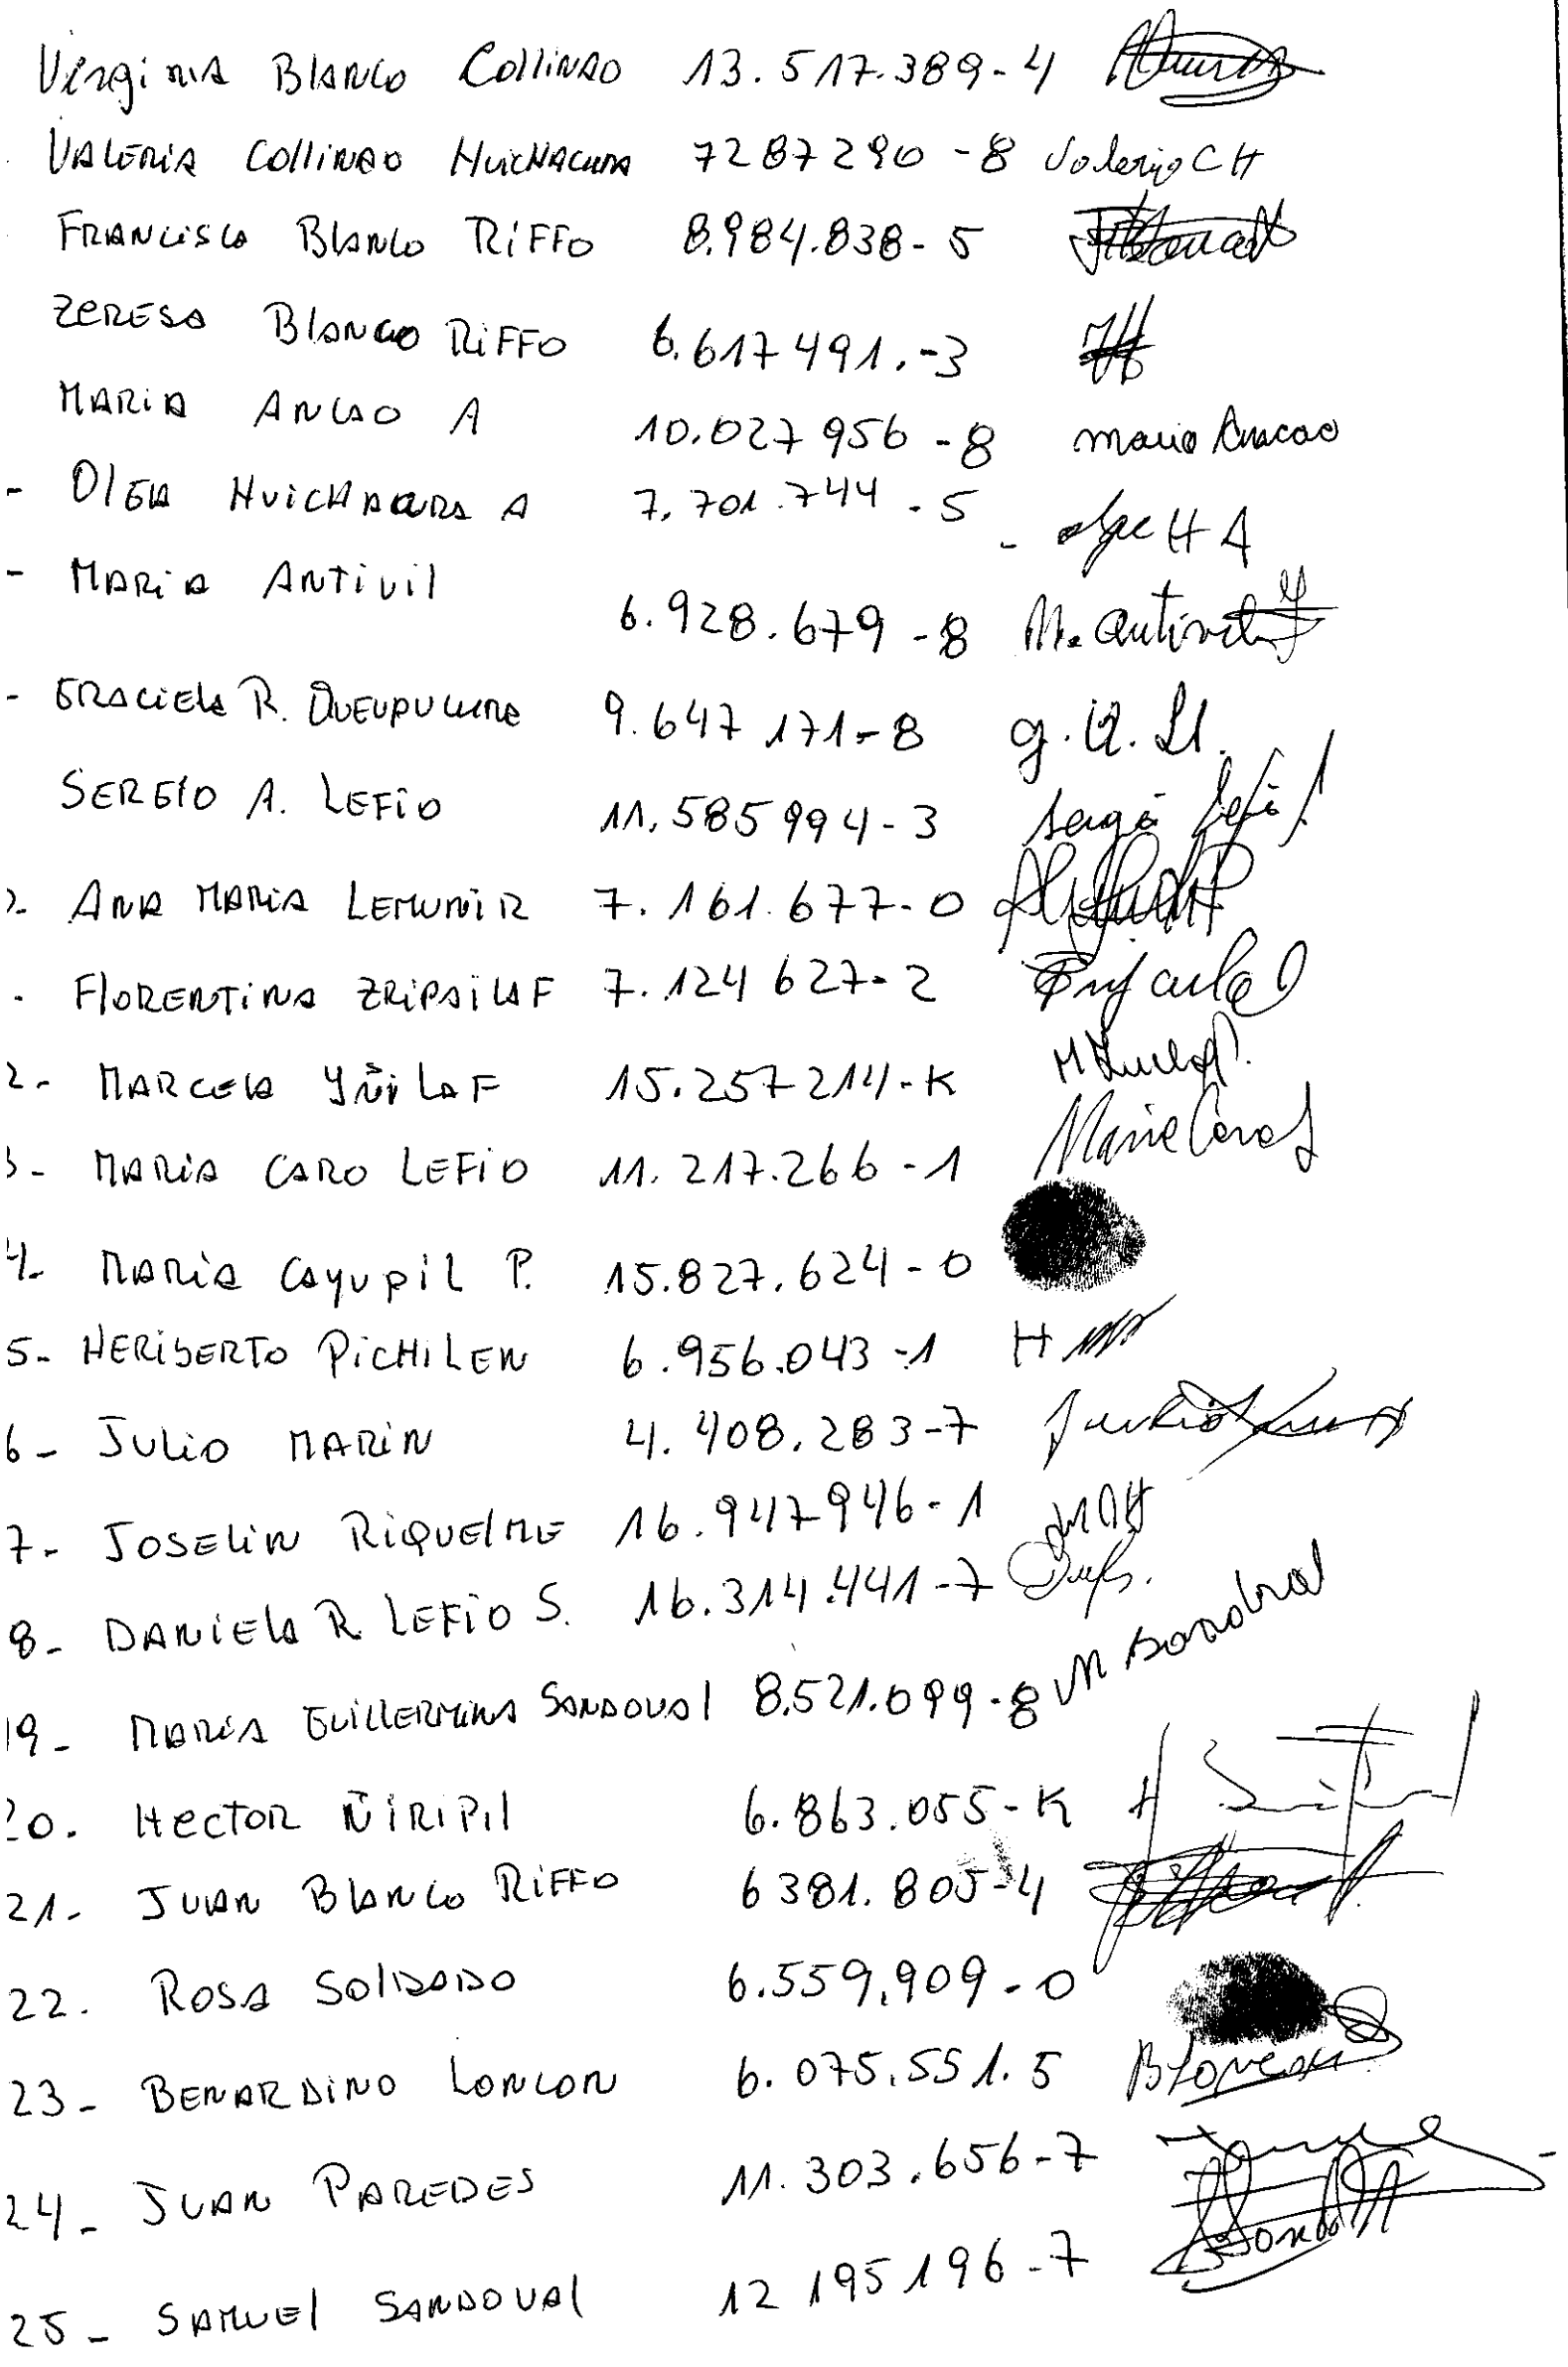 Virginia Blanco Collinao 13.517.389-4
Valeria Collinao Huichacura 7287290-8 Valeria C H
Francisco Blanco Riffo 8.984.838-5
Zeresa Blanco Riffo 6.617491.-3
Maria Ancao A 10.027956-8 maria Ancao
- Olga Huichacura A 7.701.744-5 - olga H A
- Maria Antivil 6.928.679-8 M. Antivil
- Graciela R. Queupucura 9.647171-8 g. Q. Ll.
Sergio A. Lefio 11.585994-3 Sergio Lefio
Ana Maria Lemunir 7.161.677-0
- Florentina Zripailaf 7.124627-2
2- Marcela Yñilaf 15.257214-K
3- Maria Caro Lefio 11.217.266-1 Maria Caro L
4- Maria Cayupil P. 15.827.624-0
5- Heriberto Pichilen 6.956.043-1 H
6- Julio Marin 4.408.283-7 Julio
7- Joselin Riquelme 16.947946-1
8- Daniela R Lefio S. 16.314.441-7
19- Maria Guillermina Sandoval 8.521.099-8 M Sandoval
20. Hector Ñiripil 6.863.055-K H
21- Juan Blanco Riffo 6381.805-4
22. Rosa Soldado 6.559.909-0
23- Benardino Loncon 6.075.551.5 B Loncon
24- Juan Paredes 11.303.656-7
25- Samuel Sandoval 12195196-7